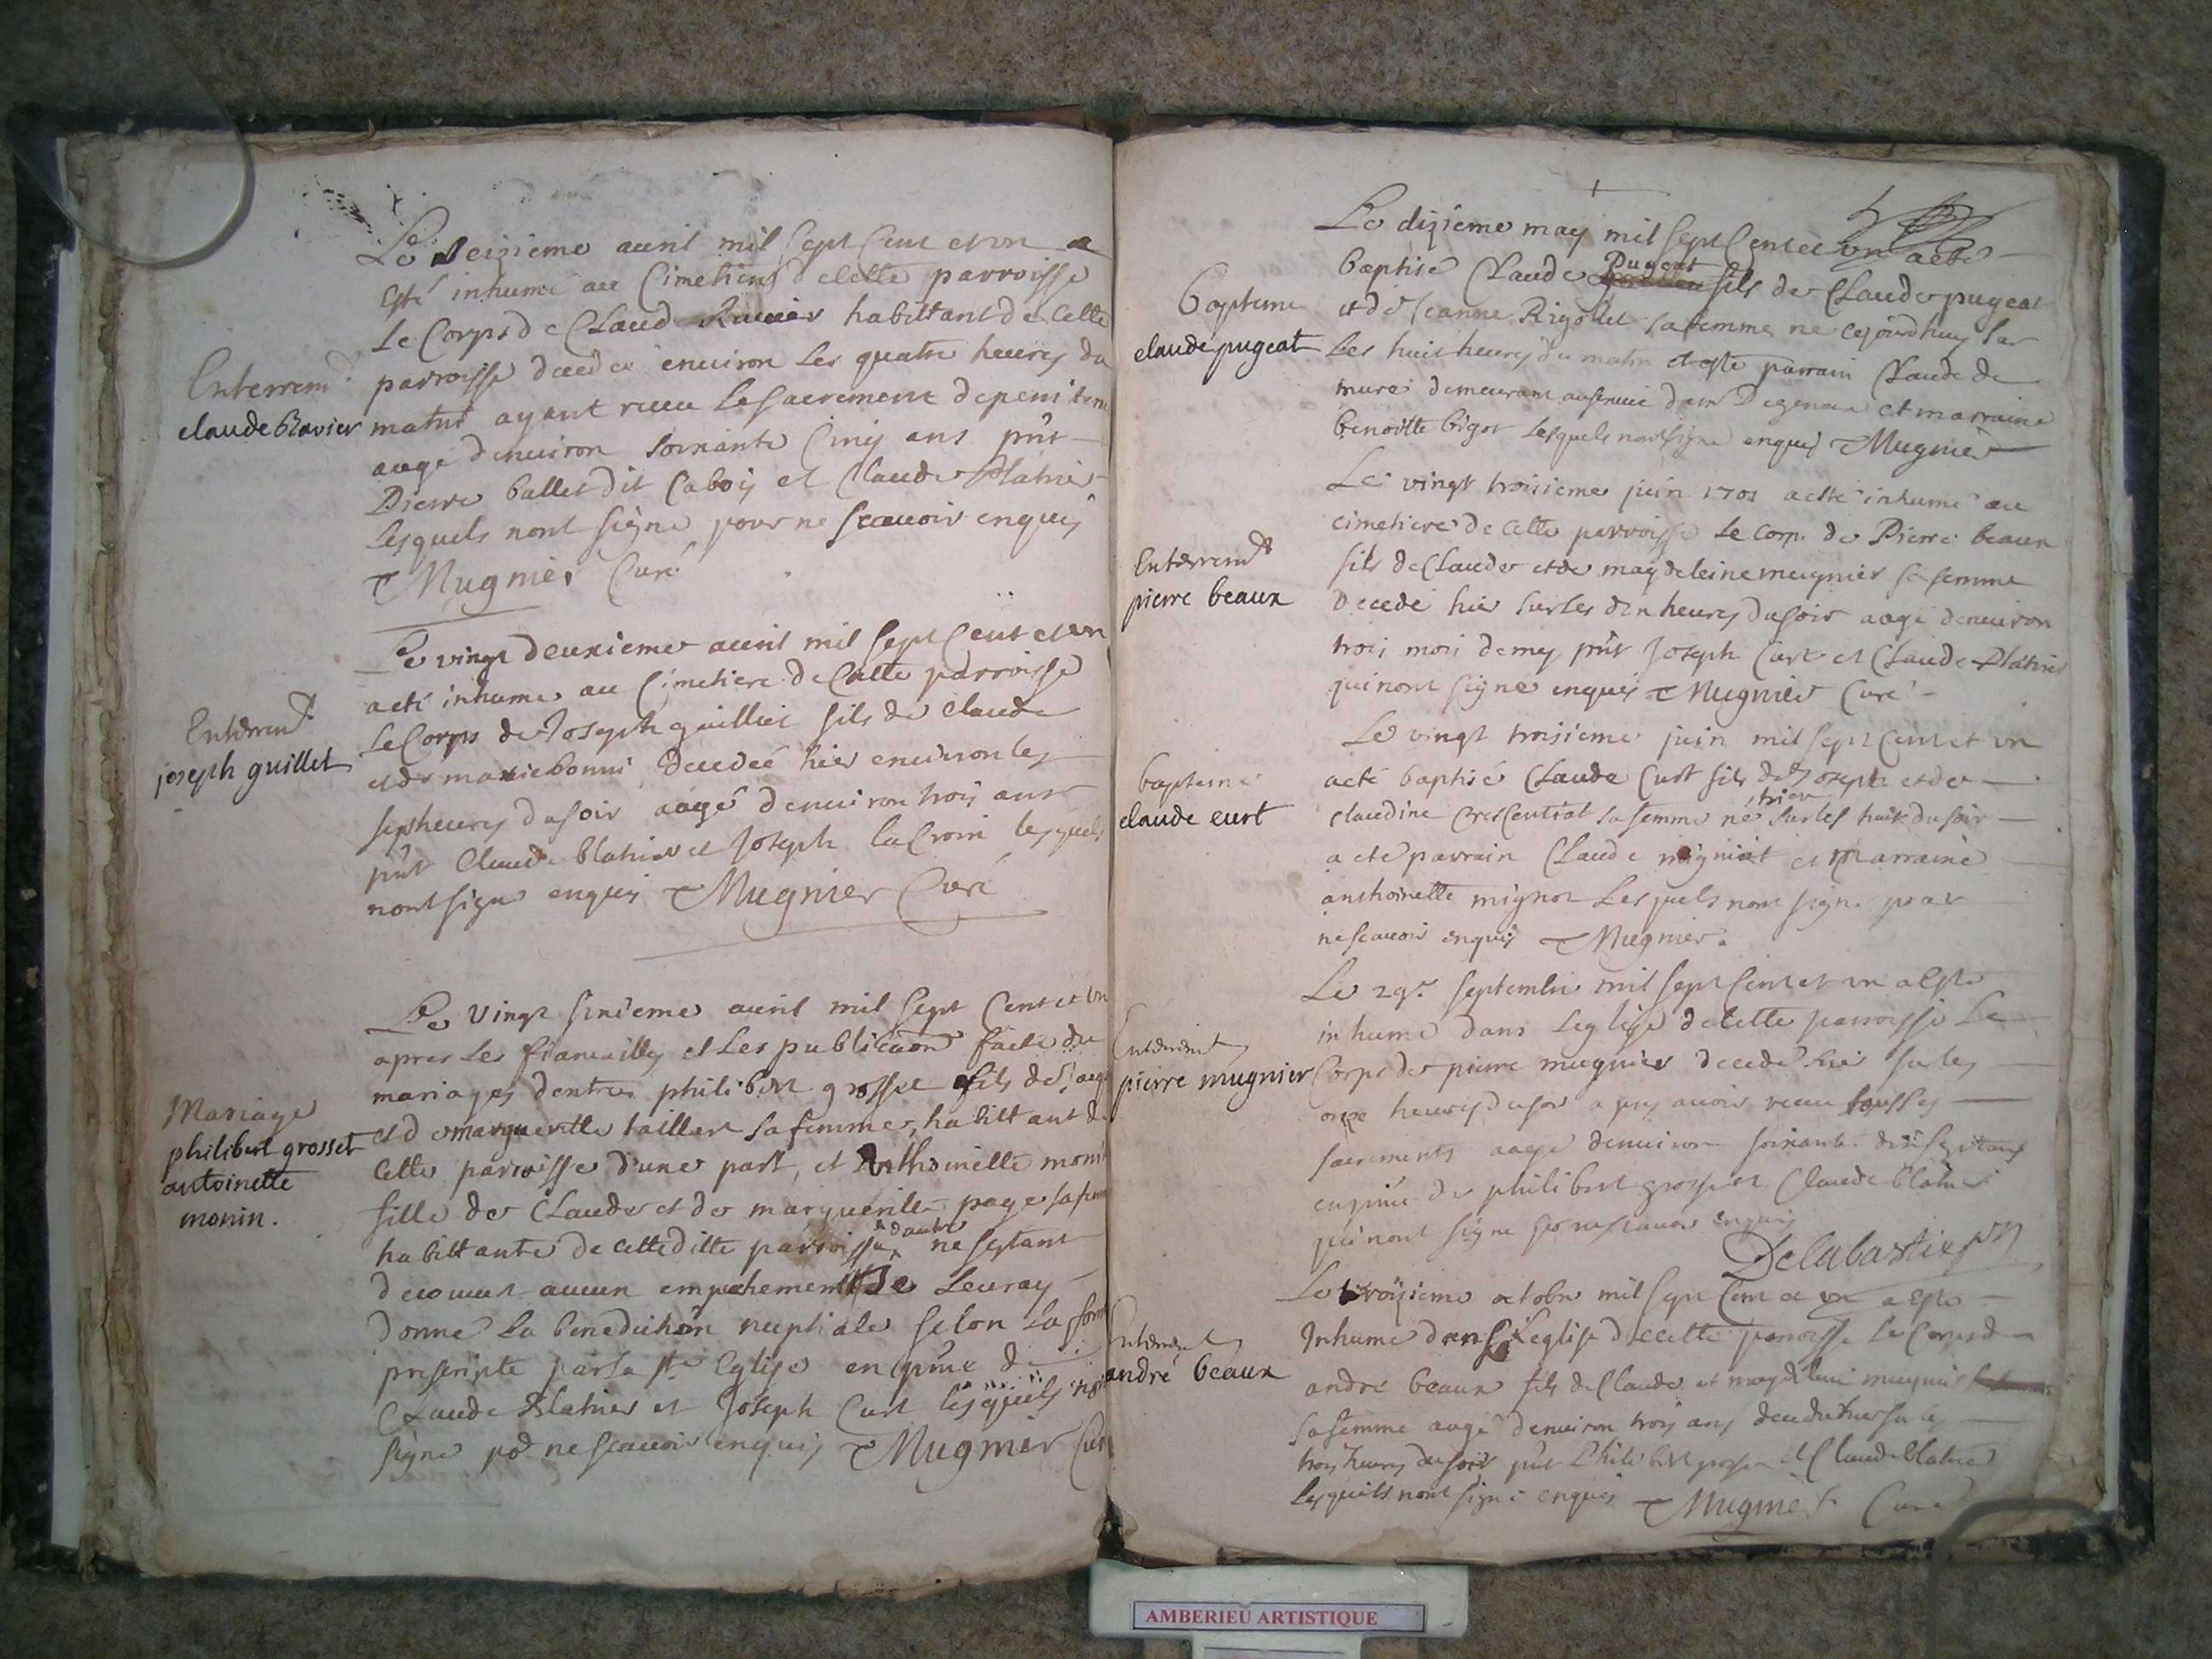 Le seizieme auril mil sept Cent et vn a
esté inhumé au Cimetiere de Cette parroisse
Le Corps de Claude Rauier habittant de Cette
Enterrem.t
claude Ravier
parroisse decedé enuiron les quatre heures du
matin ayant receu le sacrement de penitence
aagé denuiron soixante Cinq ans pnt
Pierre ballet dit Caboy et Claude Platrier
lesquels nont signé pour ne scauoir enquis
Mugnier Curé
Le vingt deuxieme auril mil sept Cent et vn
a eté inhumé au Cimetiere de Cette parroisse
Enterrem.t
joseph guillet
le Corps de Joseph guilliet fils de Claude
et de marie bonni decedé hier enuiron les
sept heures du soir aagé denuiron trois ans
pnt Claude blatrier et Joseph laCroix lesquels
nont signé enquis Mugnier Curé
Le vingt sixieme auril mil sept Cent et vn
apres les fiancailles et les publicaons faite du
mariages dentre philibert grosset fils de
Mariage
philibert grosset
antoinette
monin.
et de margueritte taillart sa femme, habittant de
Cette parroisse dune part, et Anthoinette
fille de Claude et de marguerite page sa femme
habittante de cette ditte parroisse dautre ne sestant
decouuert aucun empechement Je Leuray
donné la benediction nuptiale selon la forme
prescripte par la ste Eglise en pnce de
Claude Blatrier et Joseph Curt lesquels nont
signé po.r ne scauoir enquis Mugnier Curé
Le dizieme may mil sept Cent et vn a eté
baptisé Claude Pugeat fils de Claude pugeat
Bapteme
claude pugeat
et de Jeanne Rigollet sa femme né cejourdhuy sur
les huit heures du matin et esté parrain Claude de
mure demeurant et marraine
benoitte bigot lesquels nont signé enquis Mugnier
Le vingt troisieme juin 1701 a esté inhumé au
cimetiere de Cette parroisse le corp de Pierre beaux
Enterrem.t
pierre beaux
fils de Claude et de magdeleine meugnier sa femme
decedé hier sur les dix heures du soir aagé denuiron
trois mois demy pnt Joseph Curt et Claude Platrier
qui nont signé enquis Mugnier Curé
Le vingt troisieme juin mil sept Cent et vn
bapteme
claude curt
a eté baptisé Claude Curt fils de Joseph et de
claudine Crescentiat sa femme né hier sur les huit du soir
a eté parrain Claude migniot et marraine
anthoinette mignot Lesquels nont signé pour
ne scauoir enquis Mugnier.
Le 29.e septembre mil sept Cent et vn a esté
inhumé dans Leglise de cette parroisse Le
Enterrement
pierre mugnier
Corps de pierre mugnier decedé hier sur les
onze heures du soir apres auoir receu tous les
sacrements aagé denuiron soixante dix sept ans
en pnce de philibert grosset et Claude blatrier
qui nont signé po.r ne scauoir enquis
Delabastie
Le troisieme octobre mil sept Cent et vn a esté
Inhumé dans L'eglise de cette parroisse le Corps de
Enterrement
andré beaux
andré beaux fils de Claude et magdeleine mugnier
sa femme aagé denuiron trois ans decedé hier sur les
trois heures du soir pnt Philibert grosset et Claude blatrier
lesquels nont signé enquis Mugnier Curé
AMBERIEU ARTISTIQUE